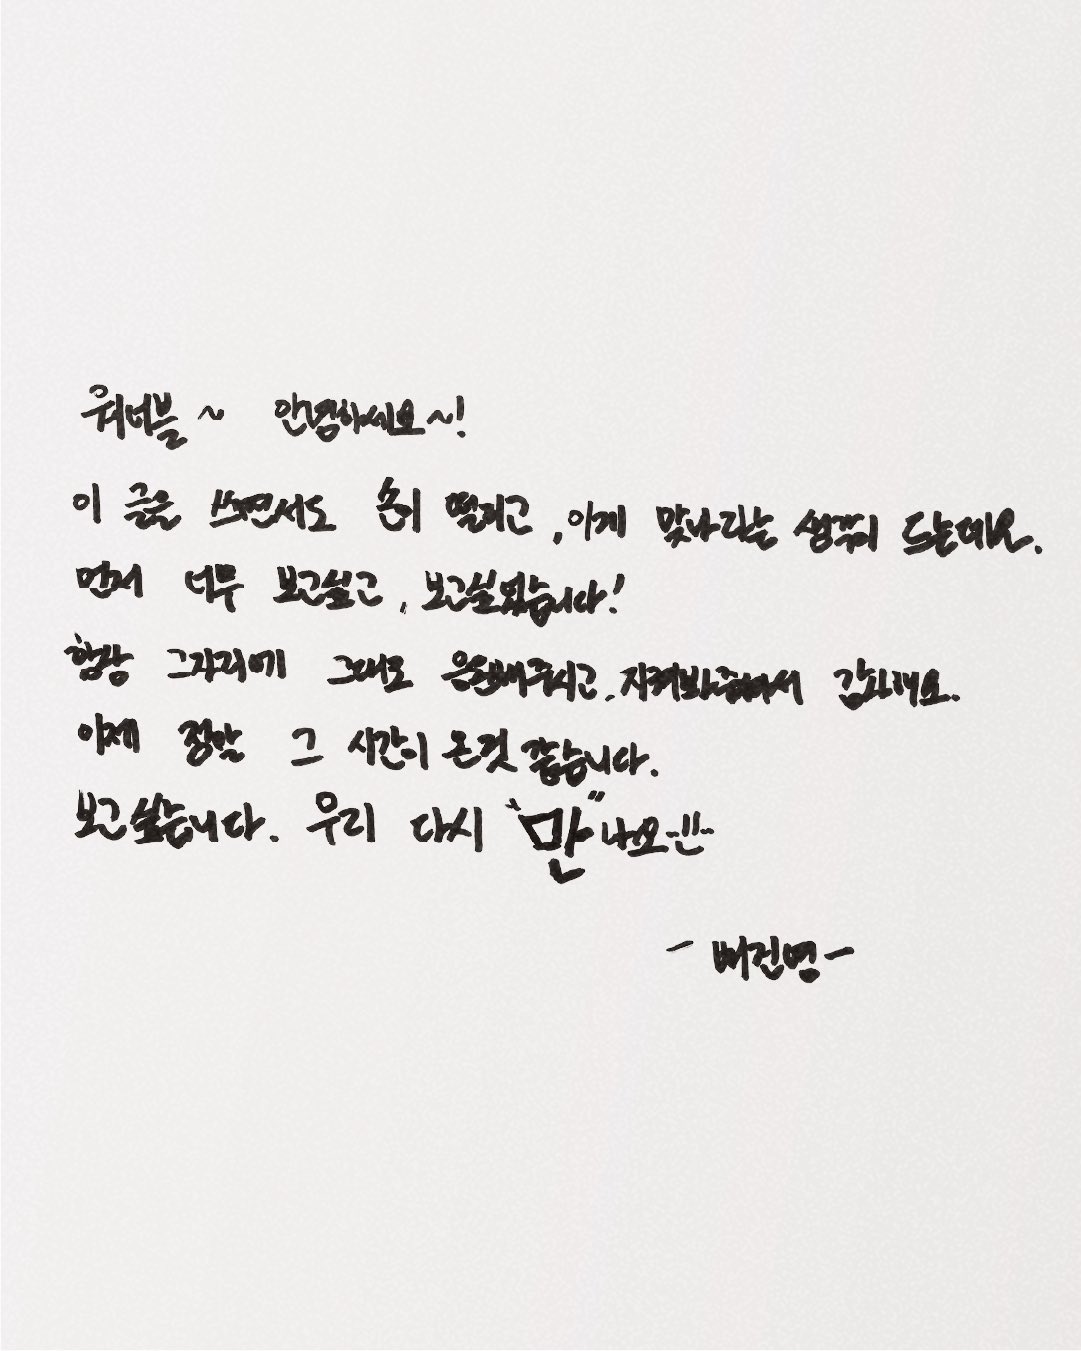 워너블~ 안녕하세요~!
이 글을 쓰면서도 손이 떨리고, 이게 맞나라는 생각이 드는데요.
먼저 너무 보고싶고, 보고싶었습니다!
항상 그자리에 그대로 응원해주시고, 지켜봐주셔서 감사해요.
이제 정말 그 시간이 온것 같습니다.
보고싶습니다. 우리 다시 "만"나요..!!..
- 배진영 -